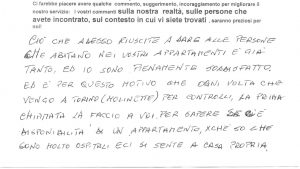 Ci farebbe piacere avere qualche commento, suggerimento, incoraggiamento per migliorare il
nostro servizio: i vostri commenti sulla nostra realtà, sulle persone che
avete incontrato, sul contesto in cui vi siete trovati, saranno preziosi per
noi!
CIÒ CHE ADESSO RIUSCITE A DARE ALLE PERSONE
CHE ABITANO NEI VOSTRI APPARTAMENTI È GIÀ
TANTO, ED IO SONO PIENAMENTE SODDISFATTO,
ED È PER QUESTO MOTIVO CHE OGNI VOLTA CHE
VENGO A TORINO (MOLINETTE) PER CONTROLLI, LA PRIMA
CHIAMATA LA FACCIO A VOI PER SAPERE SE C'È
DISPONIBILITÀ DI UN APPARTAMENTO, XCHE SO CHE
SONO MOLTO OSPITALI E CI SI SENTE A CASA PROPRIA.